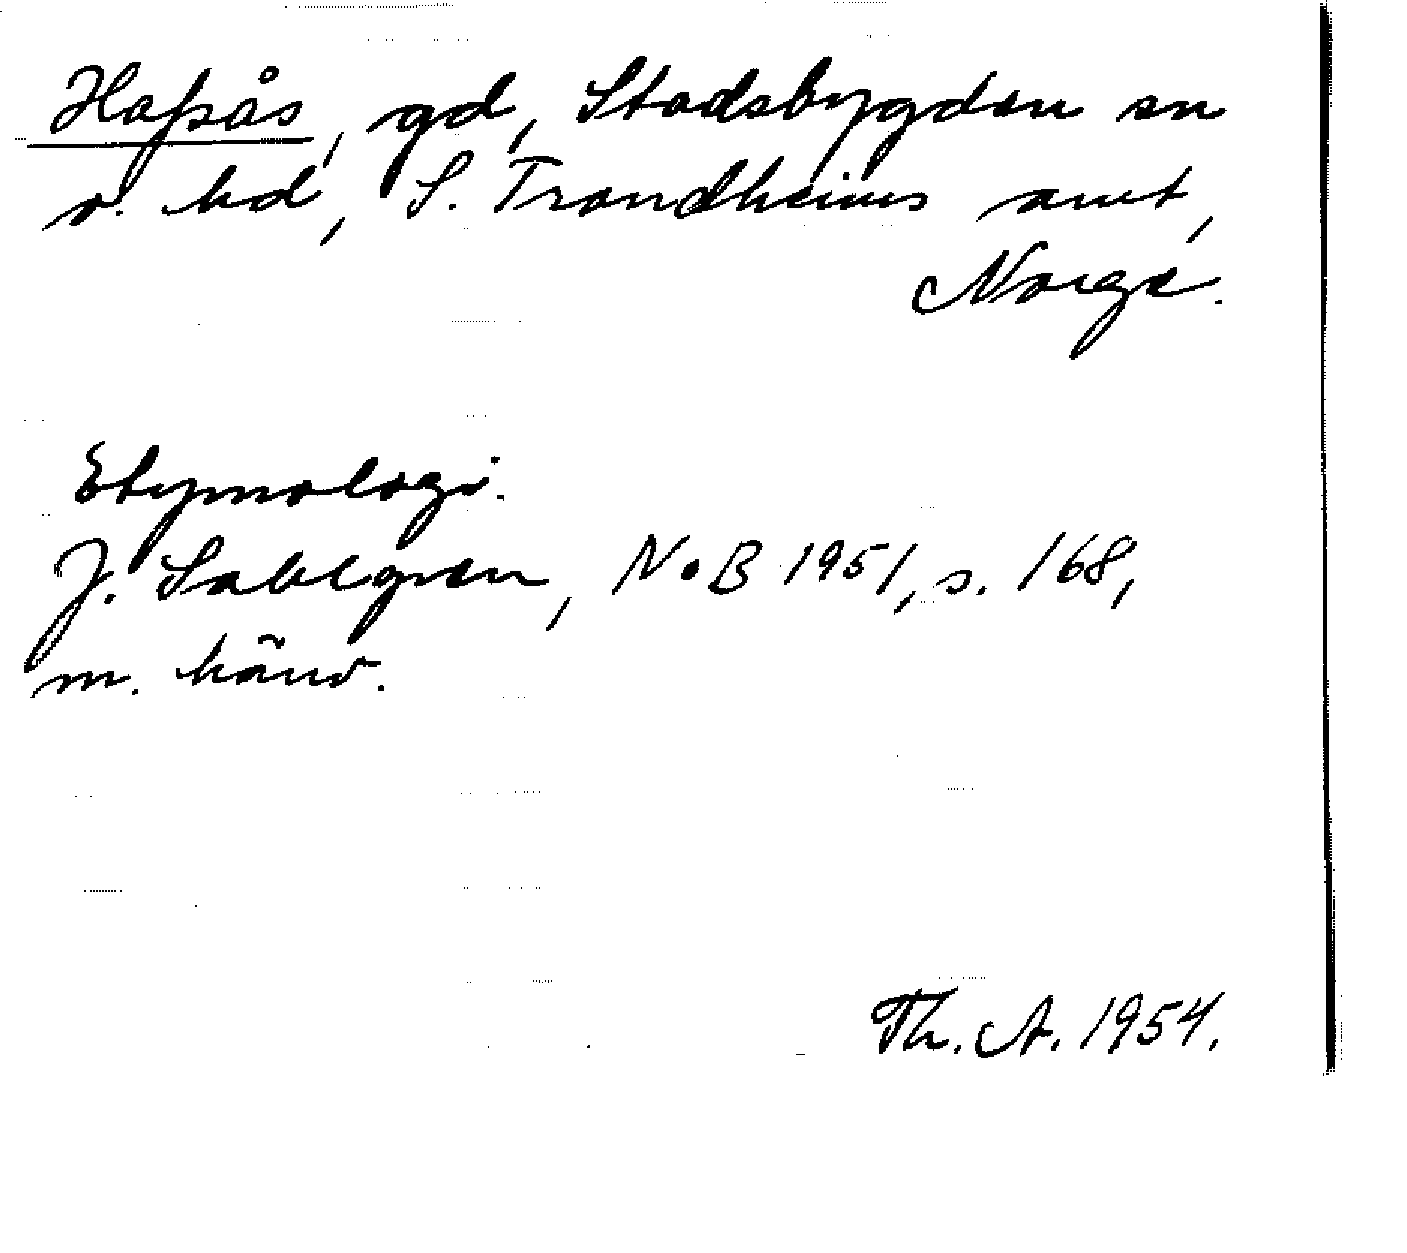 Hapås, gd, Stadsbygden sn
o. hd, S. Trondheims amt,
Norge.
Etymologi.
J. Sahlgren, NoB 1951, s. 168,
m. hänv.
Th. A. 1954.